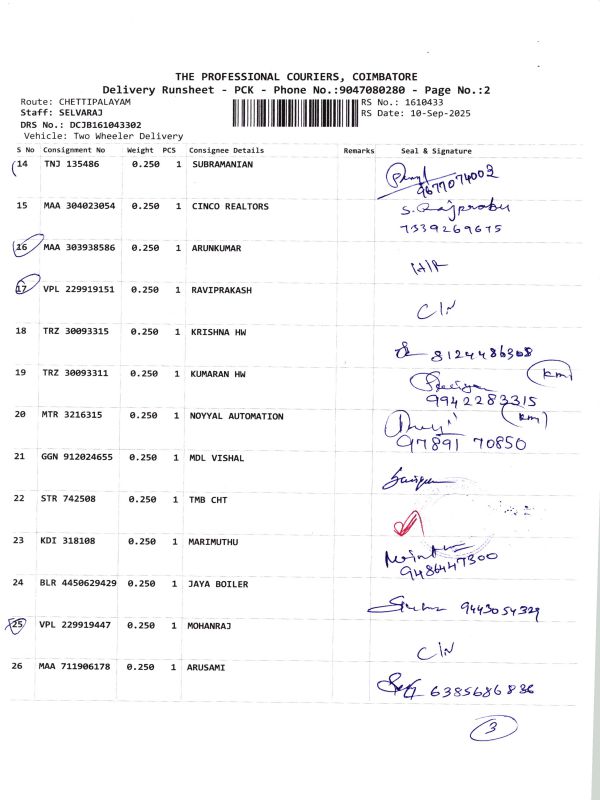 THE PROFESSIONAL COURIERS, COIMBATORE
Delivery Runsheet - PCK - Phone No.:9047080280 - Page No.:2
Route: CHETTIPALAYAM RS No.: 1610433
Staff: SELVARAJ RS Date: 10-Sep-2025
DRS No.: DCJB161043302
Vehicle: Two Wheeler Delivery
S No Consignment No Weight PCS Consignee Details Remarks Seal & Signature
14 TNJ 135486 0.250 1 SUBRAMANIAN
9677074003
15 MAA 304023054 0.250 1 CINCO REALTORS S. Rajprabu
7339269675
16 MAA 303938586 0.250 1 ARUNKUMAR
17 VPL 229919151 0.250 1 RAVIPRAKASH
C/N
18 TRZ 30093315 0.250 1 KRISHNA HW
8124486308
19 TRZ 30093311 0.250 1 KUMARAN HW
9942283315
20 MTR 3216315 0.250 1 NOYYAL AUTOMATION
97891 70850
21 GGN 912024655 0.250 1 MDL VISHAL
22 STR 742508 0.250 1 TMB CHT
23 KDI 318108 0.250 1 MARIMUTHU
9486447300
24 BLR 4450629429 0.250 1 JAYA BOILER
9443054329
25 VPL 229919447 0.250 1 MOHANRAJ
C/N
26 MAA 711906178 0.250 1 ARUSAMI
6385686836
3